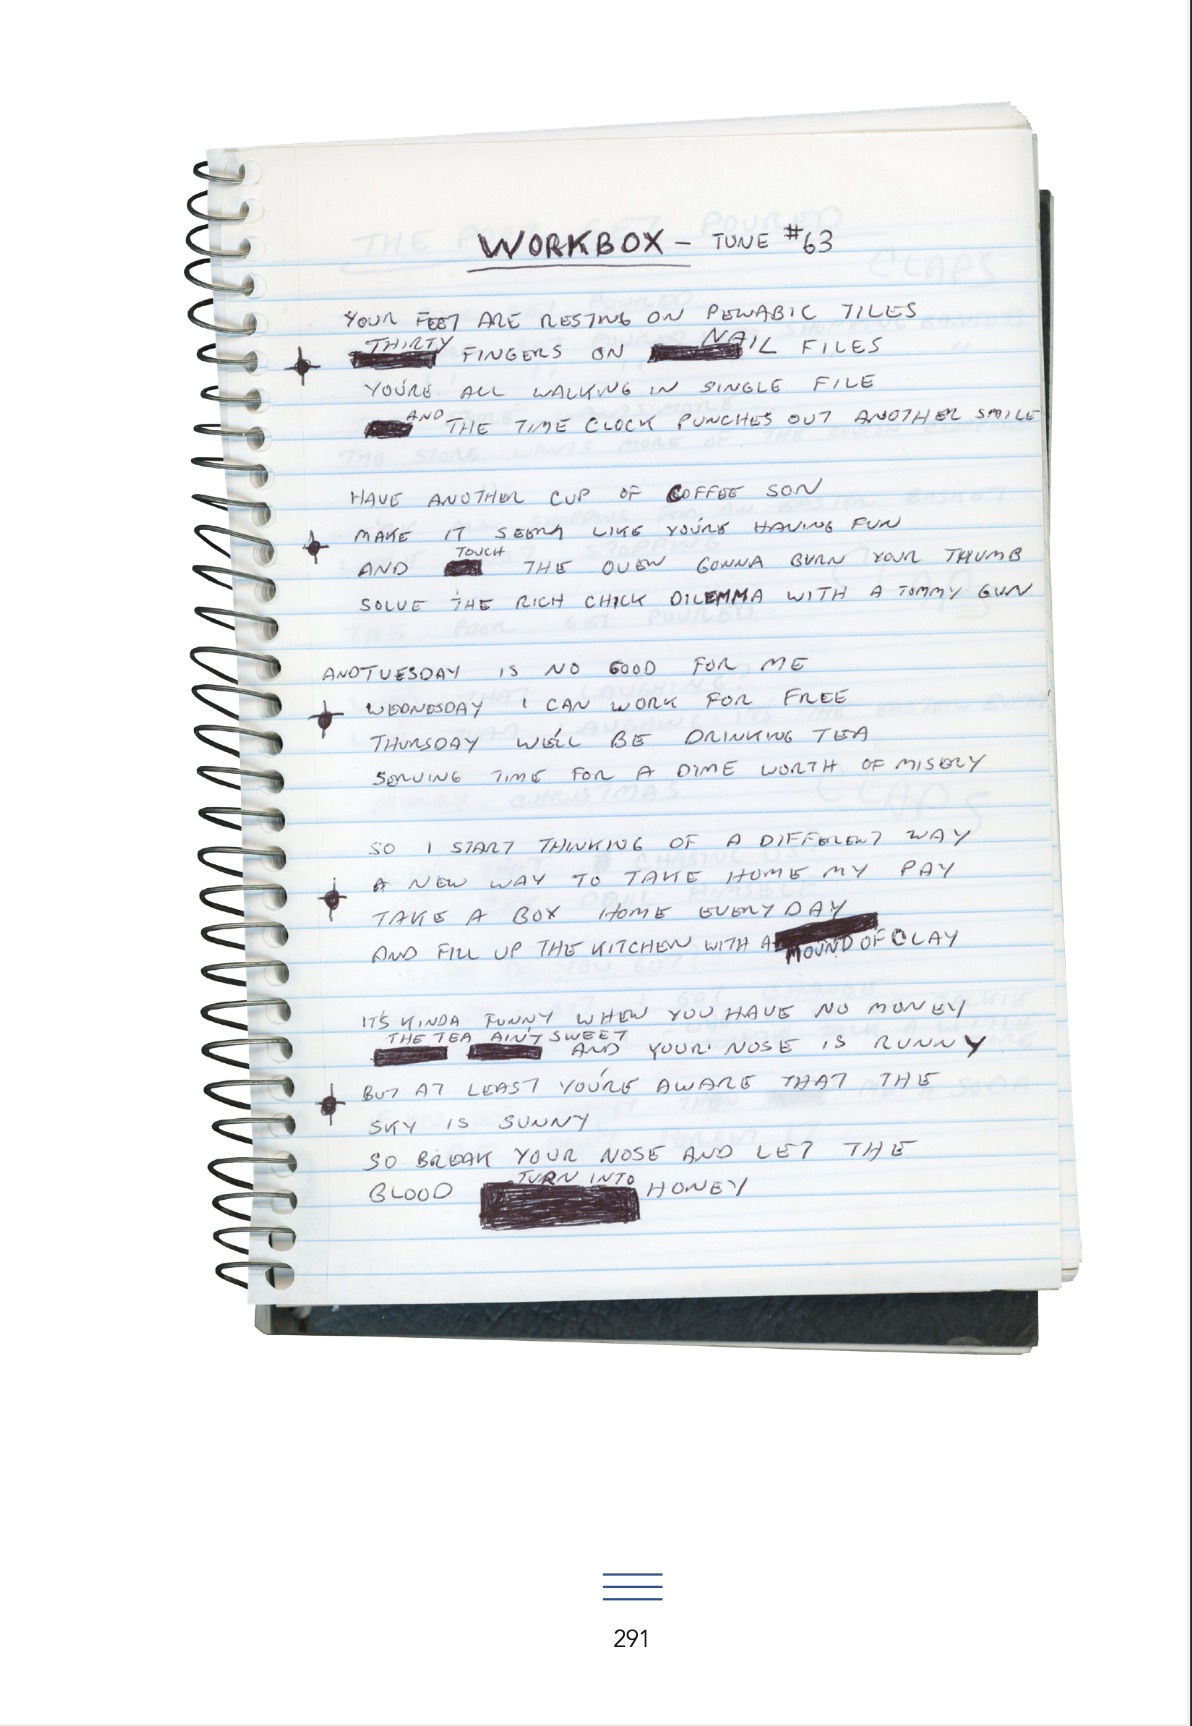 WORKBOX - TUNE #63
YOUR FEET ARE RESTING ON PEWABIC TILES
THIRTY FINGERS ON NAIL FILES
YOU'RE ALL WALKING IN SINGLE FILE
AND THE TIME CLOCK PUNCHES OUT ANOTHER SMILE
HAVE ANOTHER CUP OF COFFEE SON
MAKE IT SEEM LIKE YOU'RE HAVING FUN
AND TOUCH THE OVEN GONNA BURN YOUR THUMB
SOLVE THE RICH CHICK DILEMMA WITH A TOMMY GUN
AND TUESDAY IS NO GOOD FOR ME
WEDNESDAY I CAN WORK FOR FREE
THURSDAY WE'LL BE DRINKING TEA
SERVING TIME FOR A DIME WORTH OF MISERY
SO I START THINKING OF A DIFFERENT WAY
A NEW WAY TO TAKE HOME MY PAY
TAKE A BOX HOME EVERYDAY
AND FILL UP THE KITCHEN WITH A MOUND OF CLAY
IT'S KINDA FUNNY WHEN YOU HAVE NO MONEY
THE TEA AIN'T SWEET AND YOUR NOSE IS RUNNY
BUT AT LEAST YOU'RE AWARE THAT THE
SKY IS SUNNY
SO BREAK YOUR NOSE AND LET THE
BLOOD TURN INTO HONEY
291